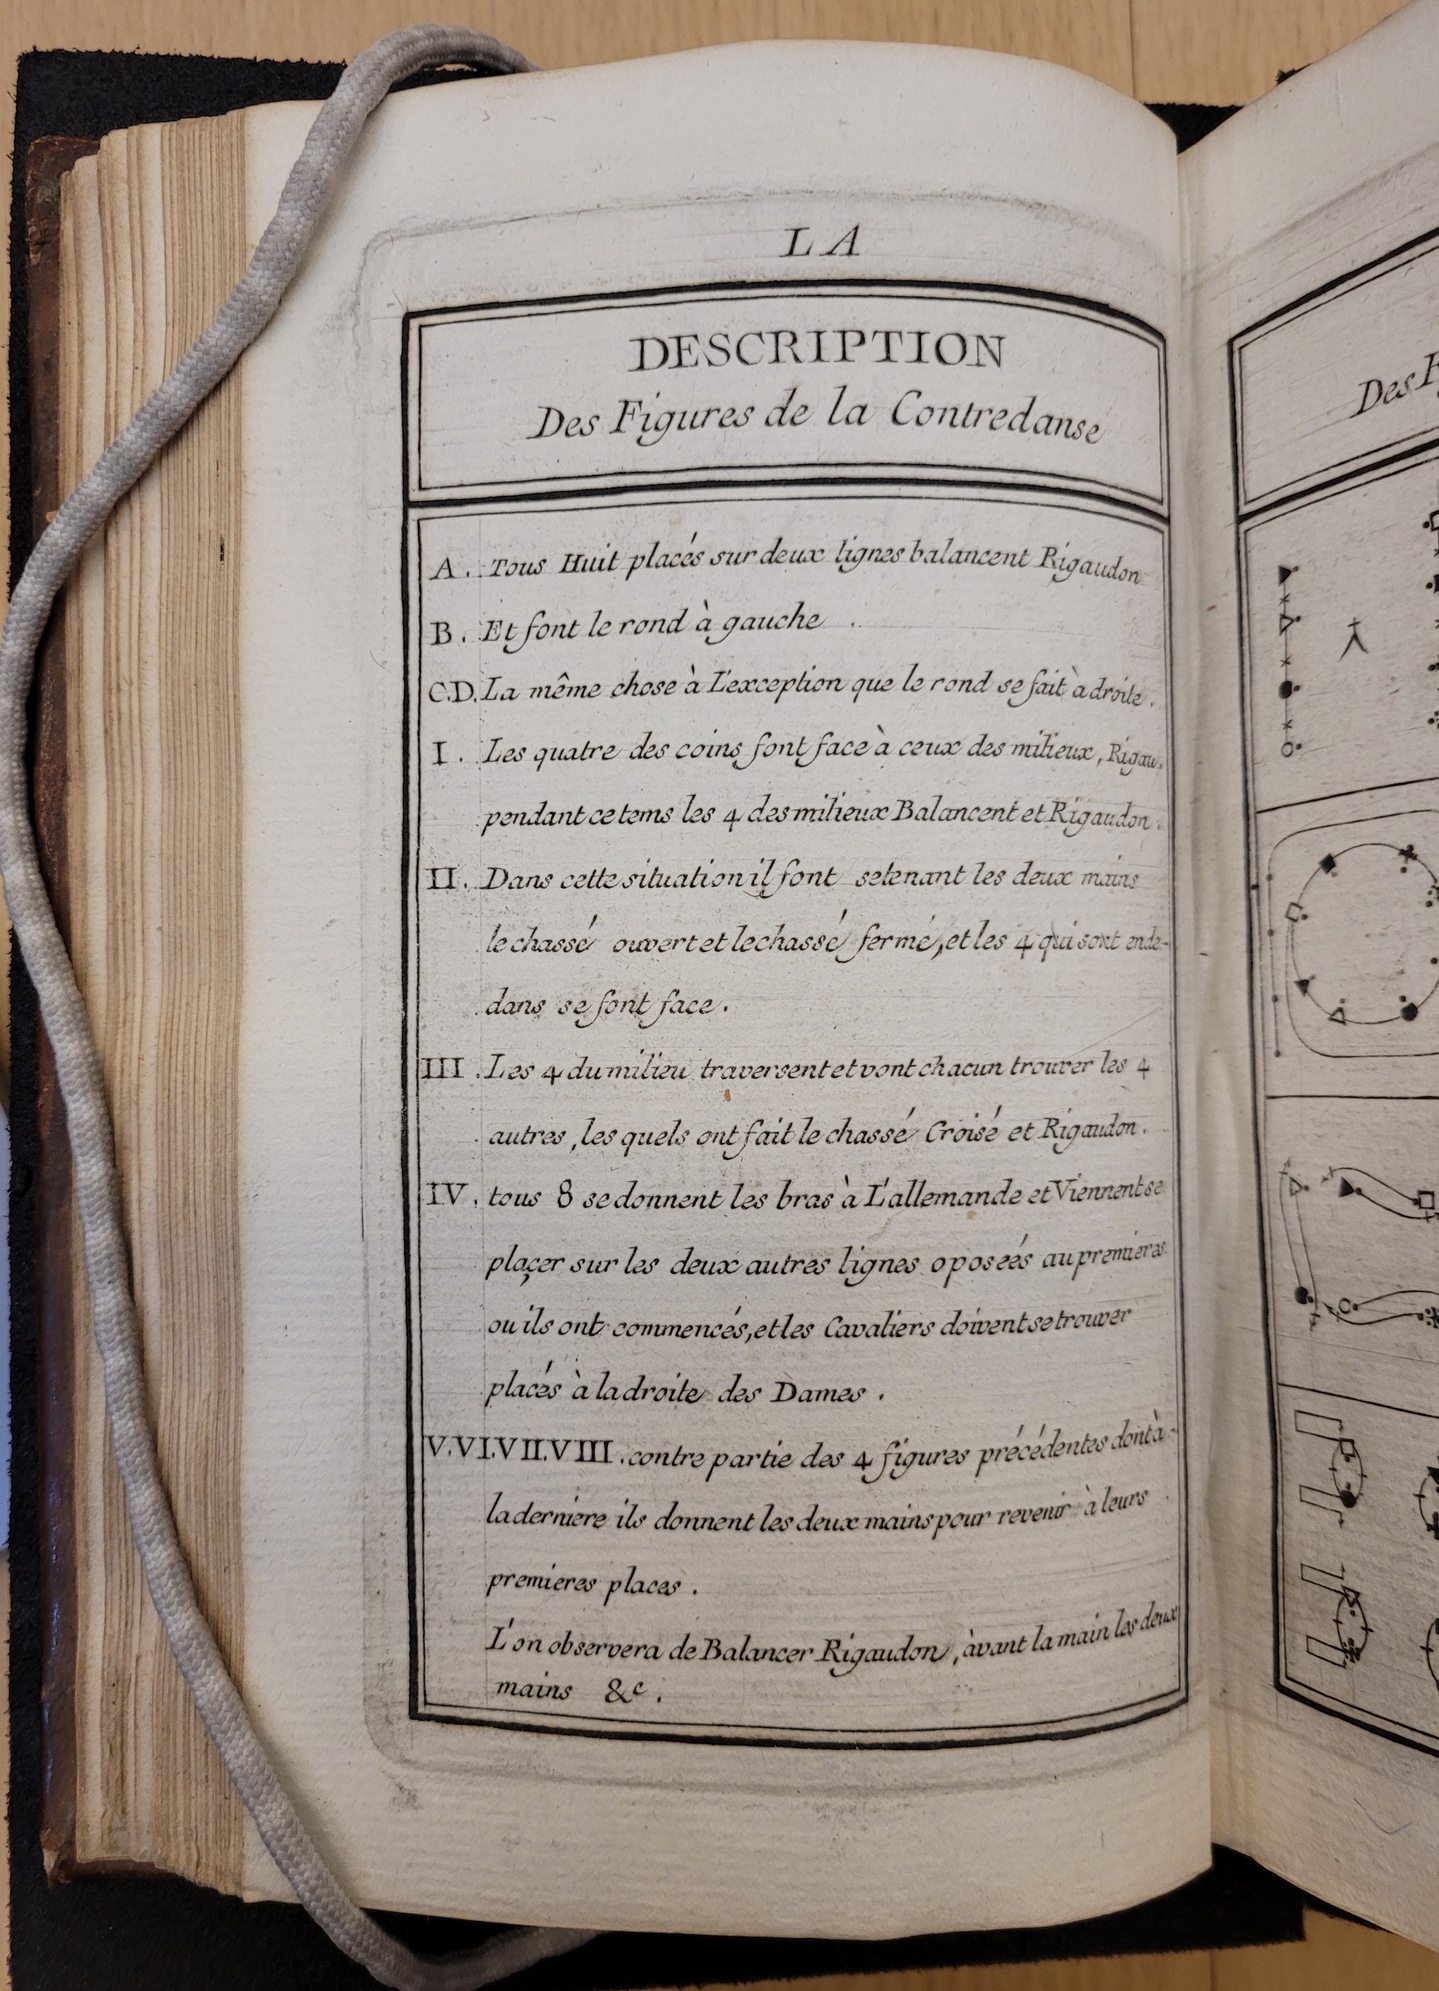 LA
DESCRIPTION
Des Figures de la Contredanse
A. Tous Huit placés sur deux lignes balancent Rigaudon
B. Et font le rond à gauche
C.D. La même chose à L'exception que le rond se fait à droite.
I. Les quatre des coins font face à ceux des milieux, Rigau.
pendant ce tems les 4 des milieux Balancent et Rigaudon.
II. Dans cette situation il font se tenant les deux mains
le chassé ouvert et le chassé fermé, et les 4 qui sont ende-
dans se font face.
III. Les 4 du milieu traversent et vont chacun trouver les 4
autres, les quels ont fait le chassé Croisé et Rigaudon.
IV. tous 8 se donnent les bras à L'allemande et Viennent se
plaçer sur les deux autres lignes oposeés au premieres
ou ils ont commencés, et les Cavaliers doivent se trouver
placés à la droite des Dames.
V.VI.VII.VIII. contre partie des 4 figures précédentes dont à
la derniere ils donnent les deux mains pour revenir à leurs
premieres places.
L'on observera de Balancer Rigaudon, àvant la main les deux
mains &c.
Des